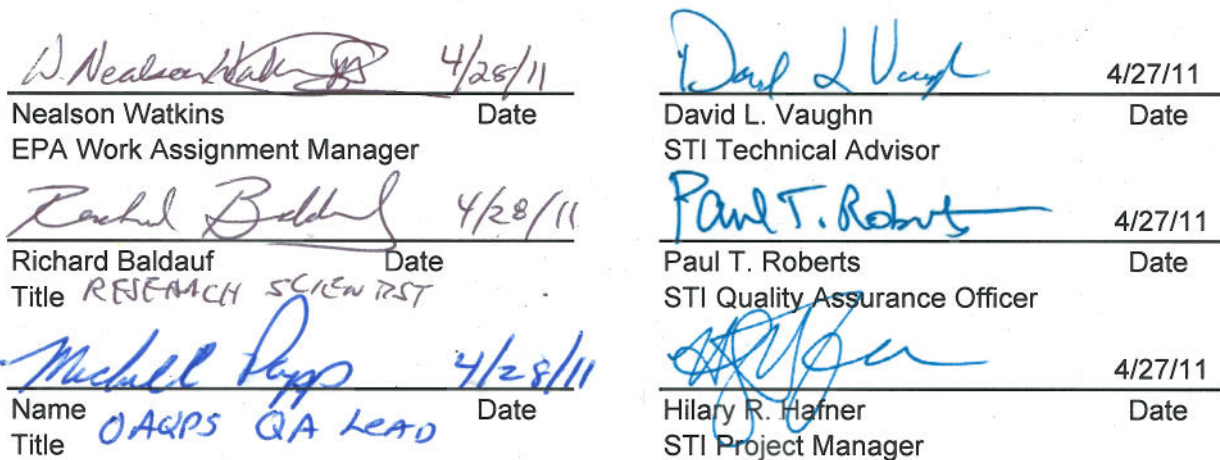 W. Nealson Watkins 4/28/11
Nealson Watkins Date
EPA Work Assignment Manager
Richard Baldauf 4/28/11
Richard Baldauf Date
Title RESEARCH SCIENTIST
Michael Papp 4/28/11
Name Date
Title OAQPS QA LEAD
David L Vaughn 4/27/11
David L. Vaughn Date
STI Technical Advisor
Paul T. Roberts 4/27/11
Paul T. Roberts Date
STI Quality Assurance Officer
4/27/11
Hilary R. Hafner Date
STI Project Manager